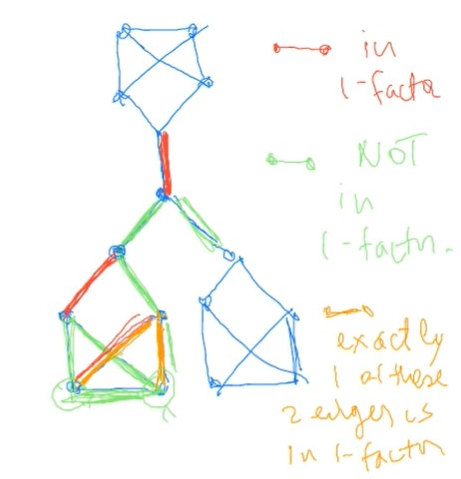 in
1-factor
NOT
in
1-factor.
exactly
1 of these
2 edges is
in 1-factor